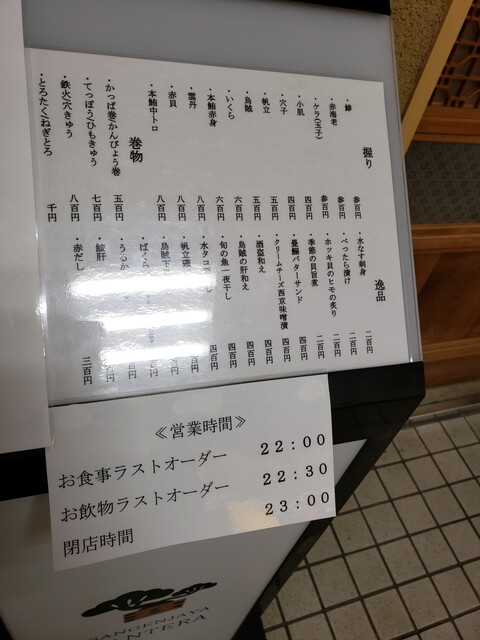 握り
・鯵 参百円
・赤海老 参百円
・ケラ(玉子) 参百円
・小肌 四百円
・穴子 四百円
・帆立 五百円
・烏賊 五百円
・いくら 六百円
・本鮪赤身 六百円
・雲丹 八百円
・赤貝 八百円
・本鮪中トロ 八百円
巻物
・かっぱ巻/かんぴょう巻 五百円
・てっぽう/ひもきゅう 七百円
・鉄火/穴きゅう 八百円
・とろたく/ねぎとろ 千円
逸品
・水なす刺身 二百円
・べったら漬け 二百円
・ホッキ貝のヒモの炙り 二百円
・季節の貝旨煮 四百円
・畳鰯バターサンド 四百円
・クリームチーズ西京味噌漬 四百円
・酒盗和え 四百円
・烏賊の肝和え 四百円
・旬の魚一夜干し 四百円
・水タコ
・帆立
・烏賊下
・ばくら
・うるか
・鮟肝
・赤だし 三百円
≪営業時間≫
お食事ラストオーダー 22:00
お飲物ラストオーダー 22:30
閉店時間 23:00
SANGENJAYA